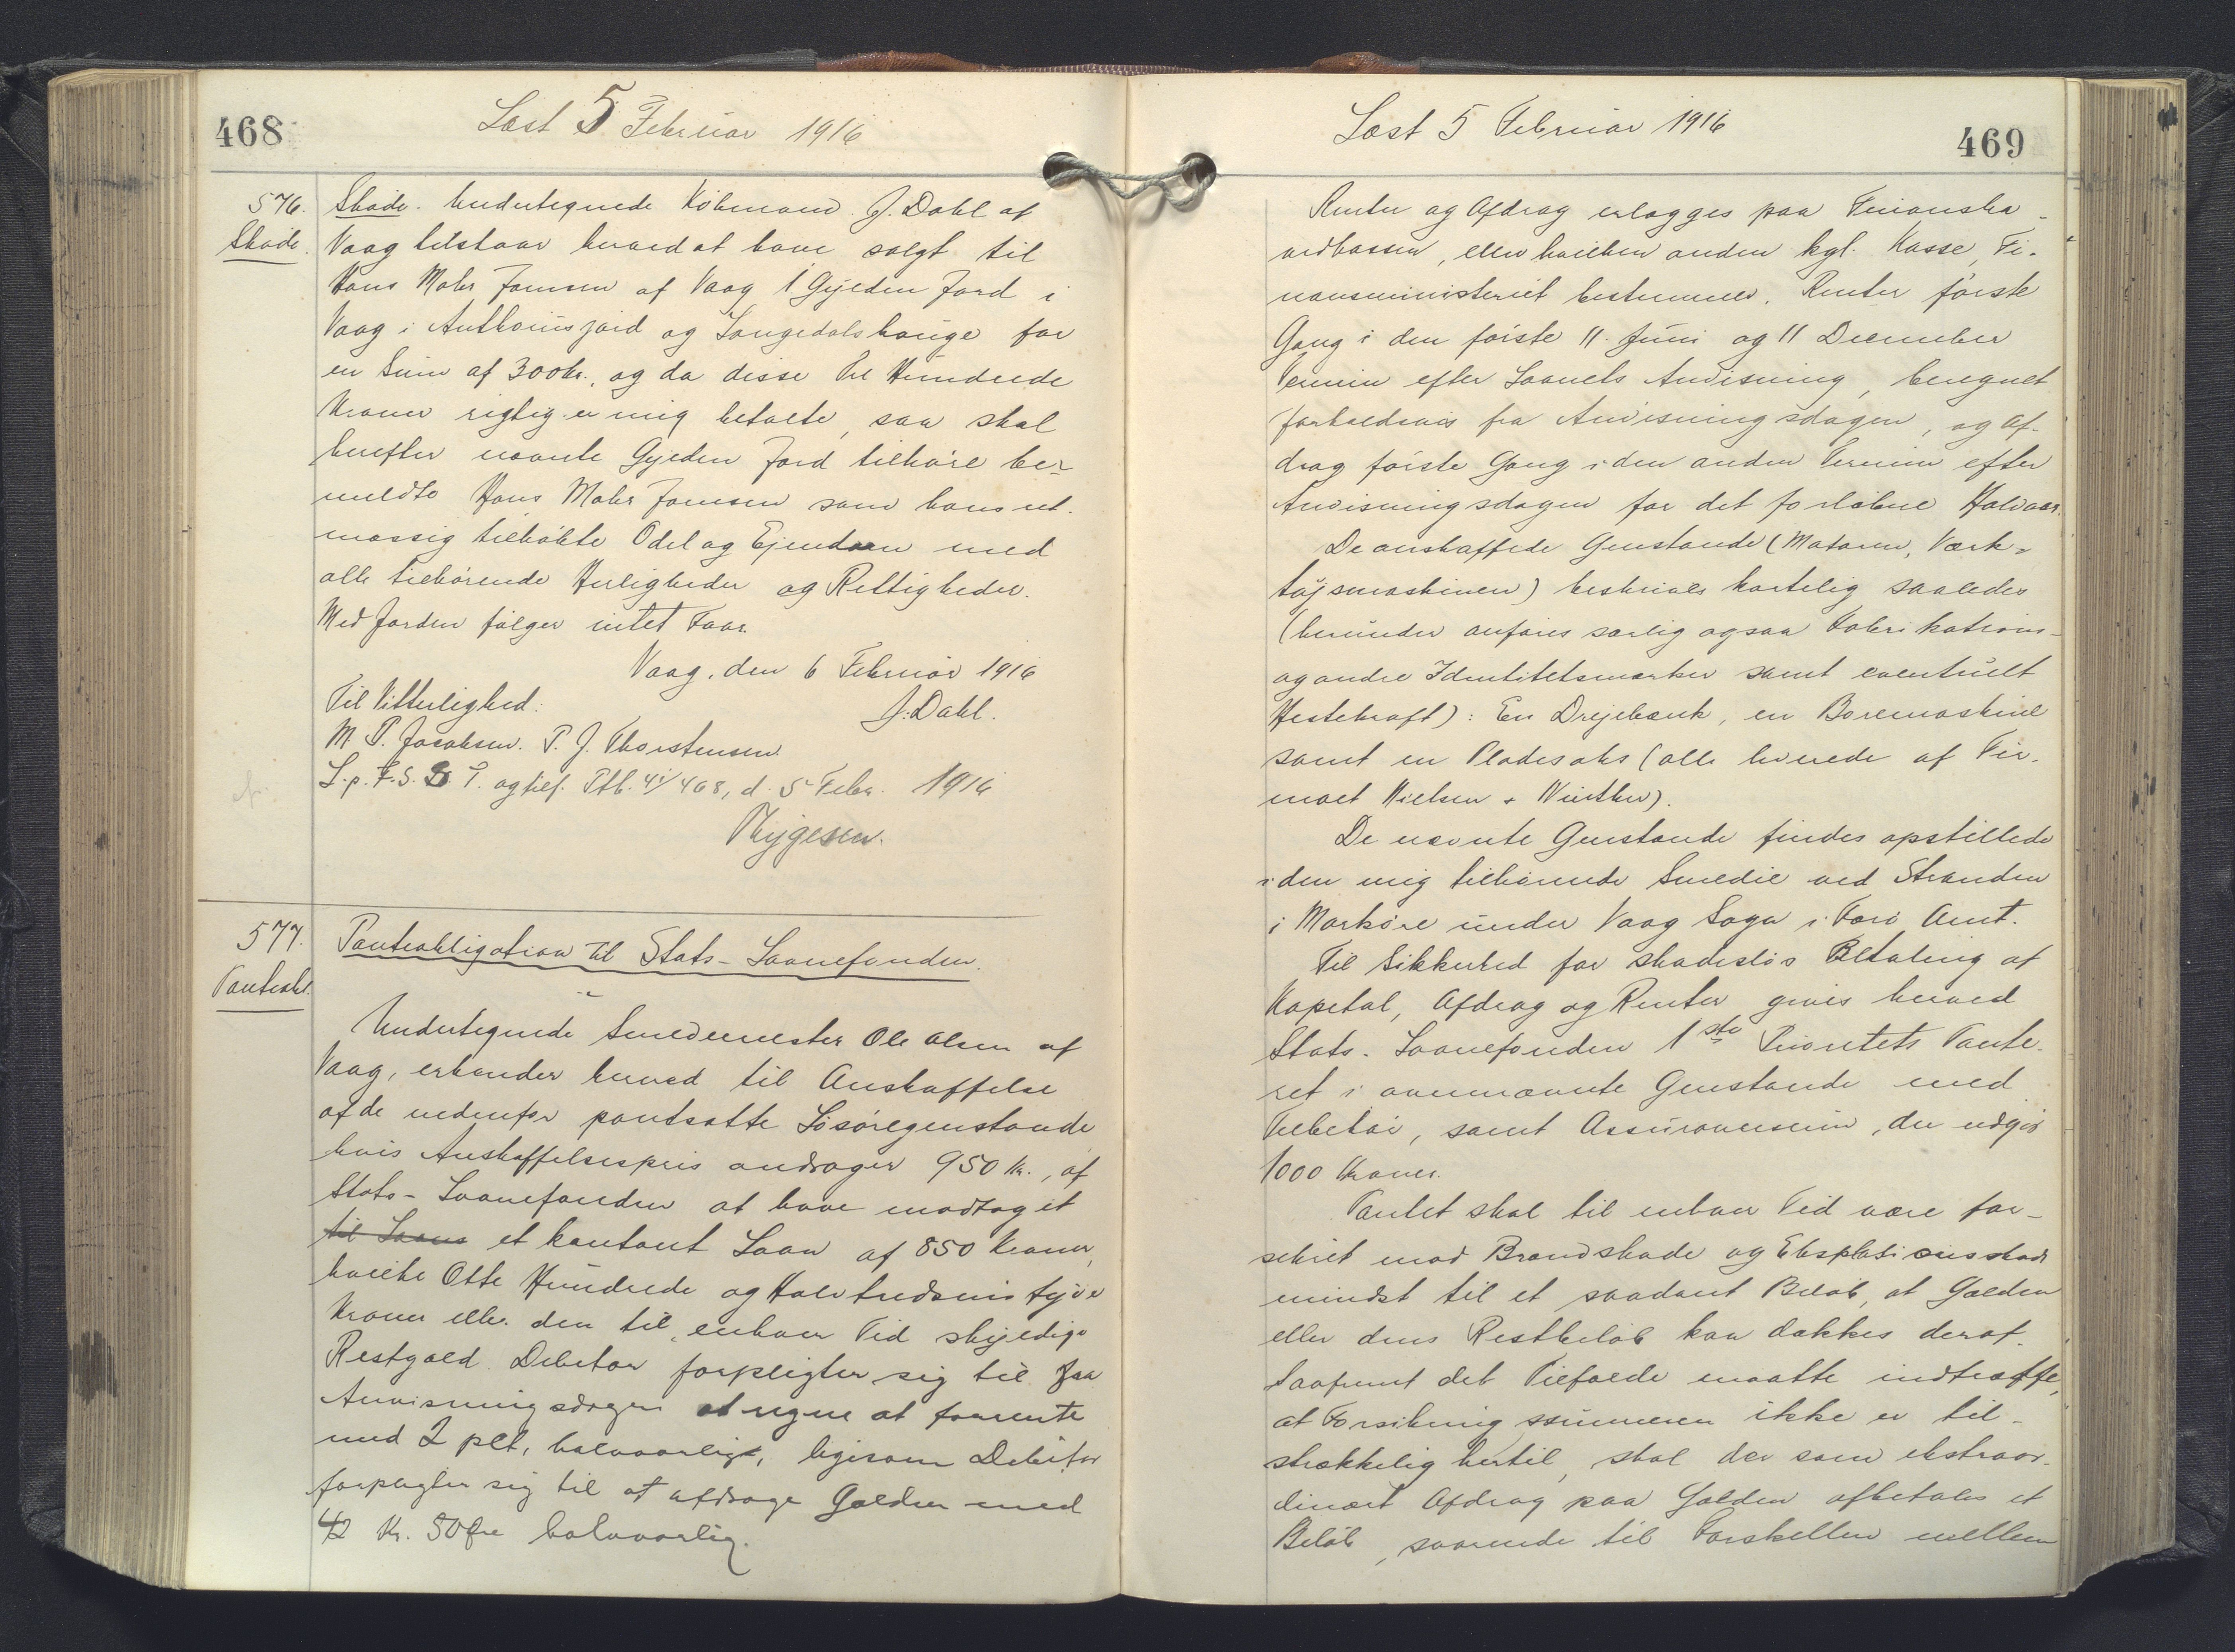 468
Læst 5 Februar 1916
576.
Skøde.
Skøde. Undertegnede Købmand J. Dahl af
Vaag tilstaar herved at have solgt til
Hans Mohr Joensen af Vaag 1 Gylden Jord i
Vaag i Anthoniisjord og Laugedalshauge for
en Sum af 300 kr., og da disse Tre Hundrede
Kroner rigtig er mig betalte, saa skal
herefter nævnte Gylden Jord tilhøre be-
meldte Hans Mohr Joensen som hans ret-
mæssig tilkøbte Odel og Ejendom med
alle tilhørende Herligheder og Rettigheder.
Med Jorden følger intet Faar.
Vaag, den 6 Februar 1916
Til Vitterlighed: J. Dahl.
M P. Jacobsen. P. J. Thorstensen.
L. p. F. S. S. T. og tilf. Ptb. 4i/468, d. 5 Febr. 1916
Thygesen.
577.
Panteobl.
Panteobligation til Stats-Laanefonden.
Undertegnede Smedemester Ole Olsen af
Vaag, erkender herved til Anskaffelse
af de nedenfor pantsatte Løsøregenstande
hvis Anskaffelsespris andrager 950 Kr., af
Stats-Laanefonden at have modtaget
til Laans et kontant Laan af 850 Kroner,
hvilke Otte Hundrede og Halvtredsinstyve
Kroner eller den til enhver Tid skyldige
Restgæld Debitor forpligter sig til fra
Anvisningsdagen at regne at forrente
med 2 pCt. halvaarligt, ligesom Debitor
forpligter sig til at afdrage Gælden med
42 Kr. 50 Øre halvaarlig.
Læst 5 Februar 1916
469
Renter og Afdrag erlægges paa Finansho-
vedkassen, eller hvilken anden kgl. Kasse, Fi-
nansministeriet bestemmer. Renter første
Gang i den første 11 Juni og 11 December
Termin efter Laanets Anvisning, beregnet
forholdsvis fra Anvisningsdagen, og Af-
drag første Gang i den anden Termin efter
Anvisningsdagen for det forløbne Halvaar.
De anskaffede Genstande (Motoren, Værk-
tøjsmaskinen) beskrives kortelig saaledes
(herunder anføres særlig ogsaa Fabrikations-
og andre Identitetsmærker samt eventuelt
Hestekraft): En Drejebænk, en Boremaskine
samt en Pladesaks (alle leverede af Fir-
maet Nielsen & Winther).
De nævnte Genstande findes opstillede
i den mig tilhørende Smedie ved Stranden
i Markøre under Vaag Sogn i Færø Amt.
Til Sikkerhed for skadesløs Betaling af
Kapital, Afdrag og Renter gives herved
Stats-Laanefonden 1ste Prioritets Pante-
ret i ovennævnte Genstande med
Tilbehør, samt Assurancesum, der udgør
1000 Kroner.
Pantet skal til enhver Tid være for-
sikret mod Brandskade og Eksplosionsskade
mindst til et saadant Beløb, at Gælden
eller dens Restbeløb kan dækkes deraf.
Saafremt det Tilfælde maatte indtræffe,
at Forsikringssummen ikke er til-
strækkelig hertil, skal der som ekstraor-
dinært Afdrag paa Gælden afbetales et
Beløb, svarende til Forskellen mellem